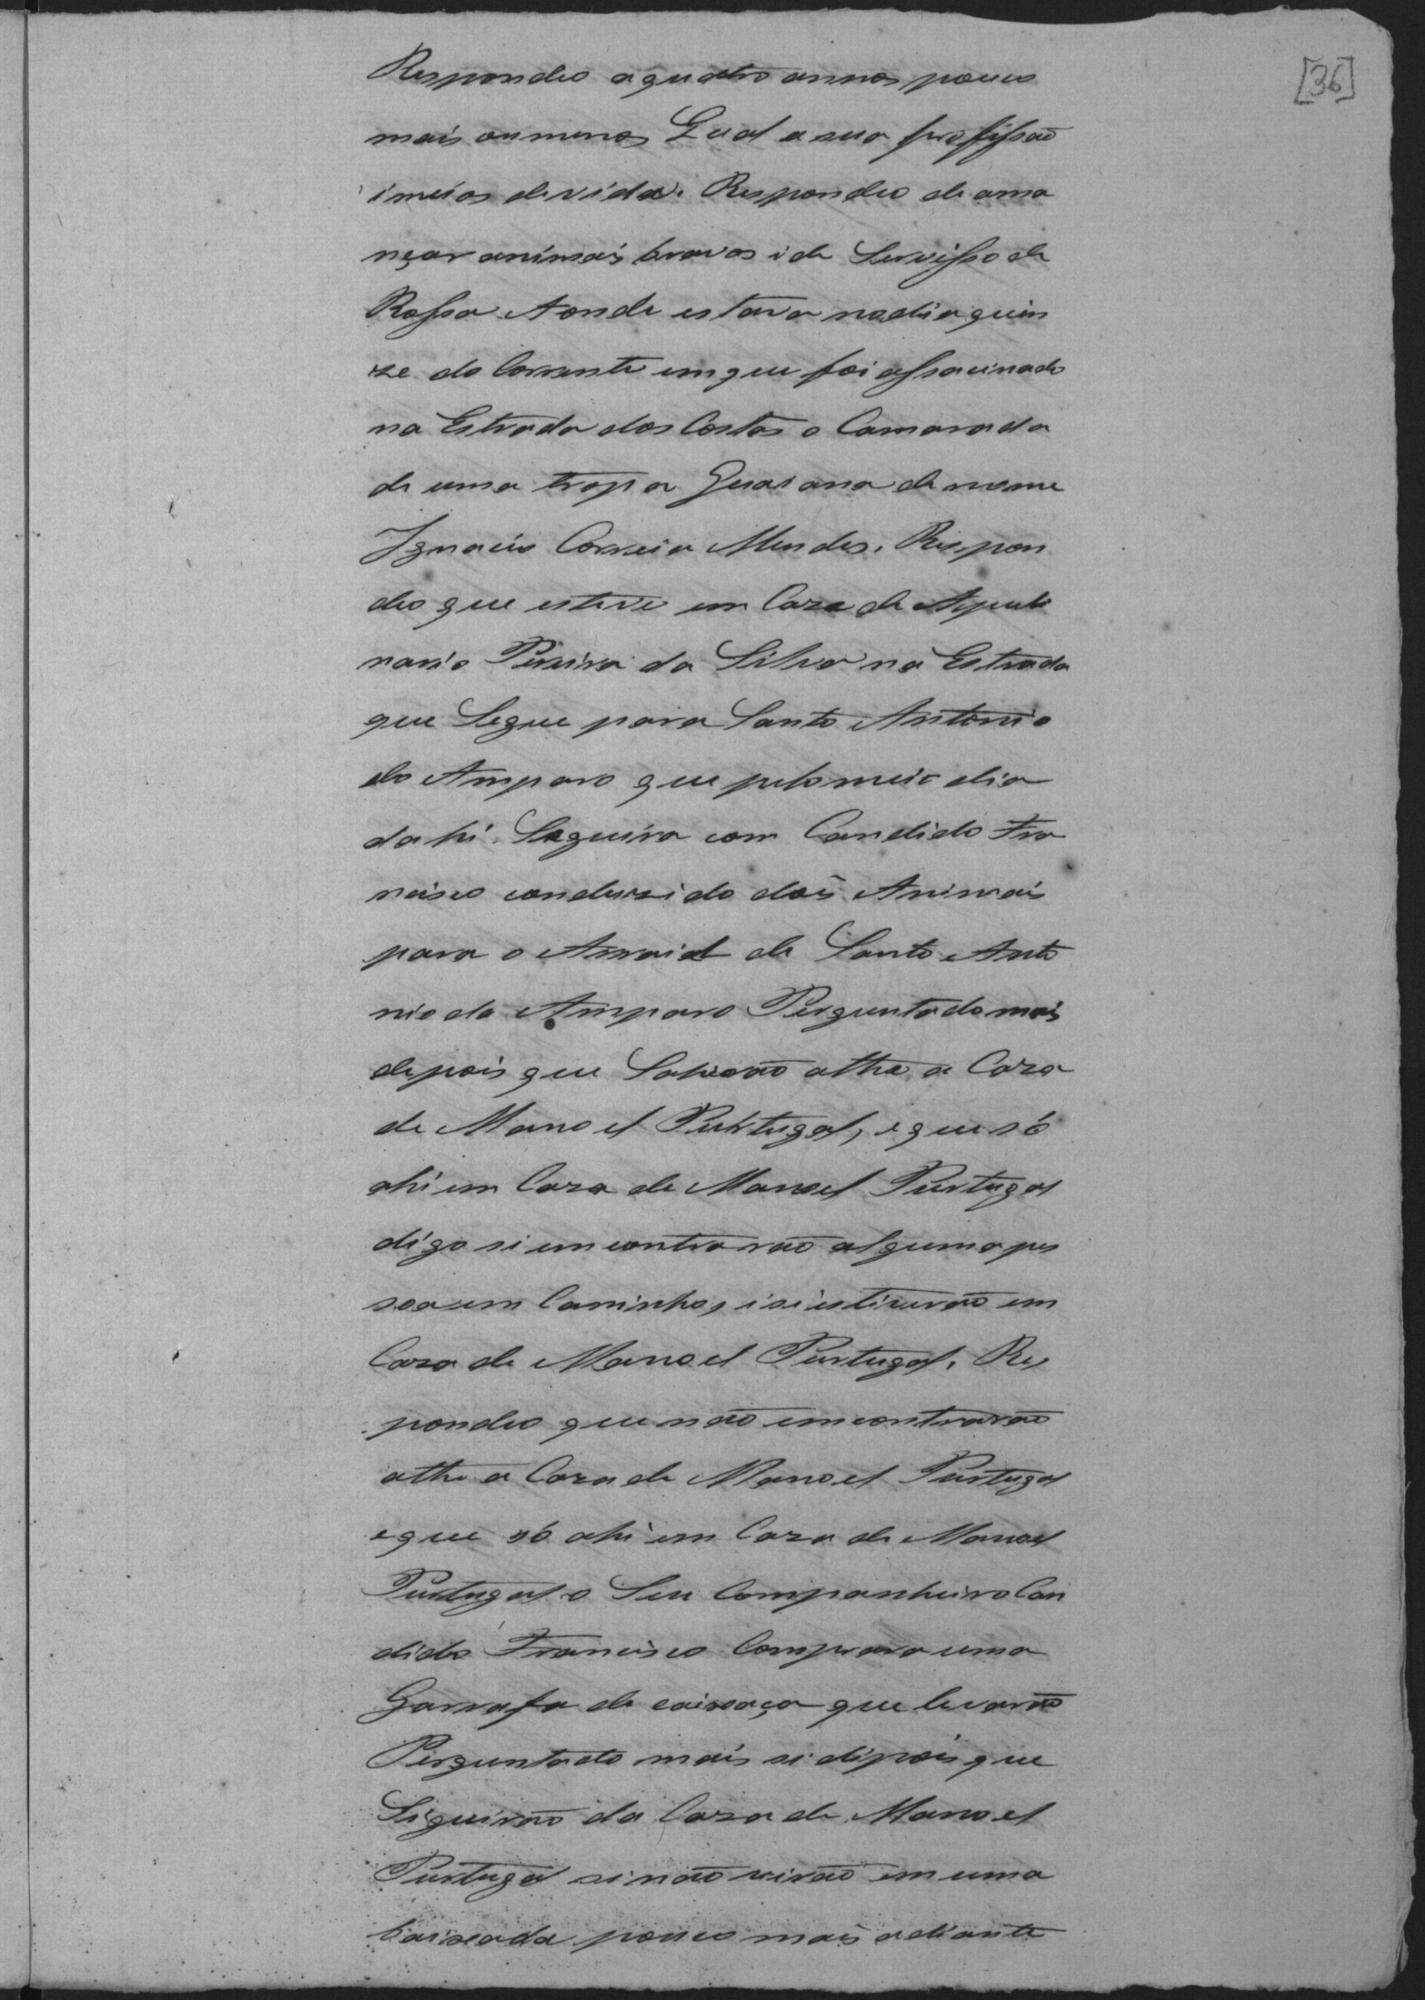 [36]
Respondeo a quatro annos pouco
mais ou menos Qual a sua profissão
i meios de vida. Respondeo de ama
nçar animais bravos i de Servisso de
Rossa Aonde estava no dia quin
ze do Corrente em que foi assacinado
na Estrada dos Costas o Camarada
de uma tropa Guaiana de nome
Ignacio Correia Mendes. Respon
deo que esteve em Caza de Apuli
nario Pereira da Silva na Estrada
que Segue para Santo Antonio
do Amparo que pelo meio dia
dahi Seguira com Candido Fra
ncisco conduzido dois Animais
para o Arraial de Santo Anto
nio do Amparo Perguntado mais
depois que Sahirão athe a Caza
de Manoel Purtugal, e que só
ahi em Caza de Manoel Purtugal
digo si emcontrarão alguma pes
soa em Caminho, i si estiverão em
Caza de Manoel Purtugal. Res
pondeo que não emcontrarão
athe a Caza de Manoel Purtugal
e que só ahi em Caza de Manoel
Purtugal o Seu Companheiro Can
dido Francisco Comprara uma
Garrafa de caixaça que levarão
Perguntado mais si dipois que
Siguirão da Caza de Manoel
Purtugal si não virão em uma
baixada pouco mais adiante